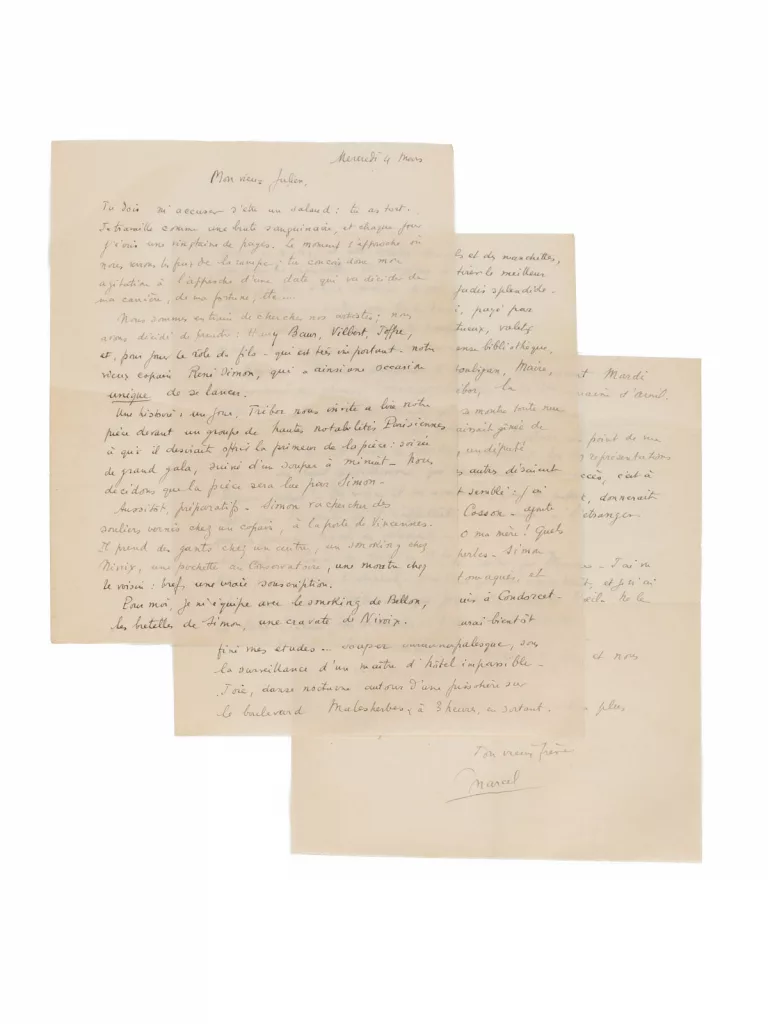 Mercredi 4 Mars
Mon vieux Julien,
Tu dois m'accuser d'être un salaud : tu as tort.
Je travaille comme une brute sanguinaire, et chaque jour
j'écris une vingtaine de pages. Le moment s'approche où
nous verrons le feu de la rampe ; tu conçois donc mon
agitation à l'approche d'une date qui va décider de
ma carrière, de ma fortune, etc...
Nous sommes en train de chercher nos artistes : nous
avons décidé de prendre : Harry Baur, Vilbert, Joffre,
et, pour jouer le rôle du fils - qui est très important - notre
vieux copain René Simon, qui a ainsi une occasion
unique de se lancer.
Une histoire : un jour, Trébor nous invite à lire notre
pièce devant un groupe de hautes notabilités Parisiennes
à qui il désirait offrir la primeur de la pièce : soirée
de grand gala, suivie d'un souper à minuit - Nous
décidons que la pièce sera lue par Simon -
Aussitôt, préparatifs - Simon va chercher des
souliers vernis chez un copain, à la porte de Vincennes.
Il prend des gants chez un autre, un smoking chez
Nivoix, une pochette au Conservatoire, une montre chez
le voisin : bref, une vraie souscription.
Pour moi, je m'équipe avec le smoking de Bellon,
les bretelles de Simon, une cravate de Nivoix.
et des manchettes,
tirer le meilleur
jadis splendide -
payé par
valets
bibliothèque.
Maire,
la
se montre toute nue
gênée de
un député
autres disaient
semblé : j'ai
Cosson - ajoute
O ma mère ! Quels
Simon
estomaqués, et
suis à Condorcet -
aurai bientôt
fini mes études... souper sous
la surveillance d'un maître d'hôtel impassible -
Joie, danse nocturne autour d'une pissotière sur
le boulevard Malesherbes, à 3 heures, en sortant.
Mardi
d'avril.
point de vue
représentations
succès, c'est à
donnerait
étranger
J'ai vu
et j'ai
Ne le
et nous
plus
Ton vieux frère
Marcel